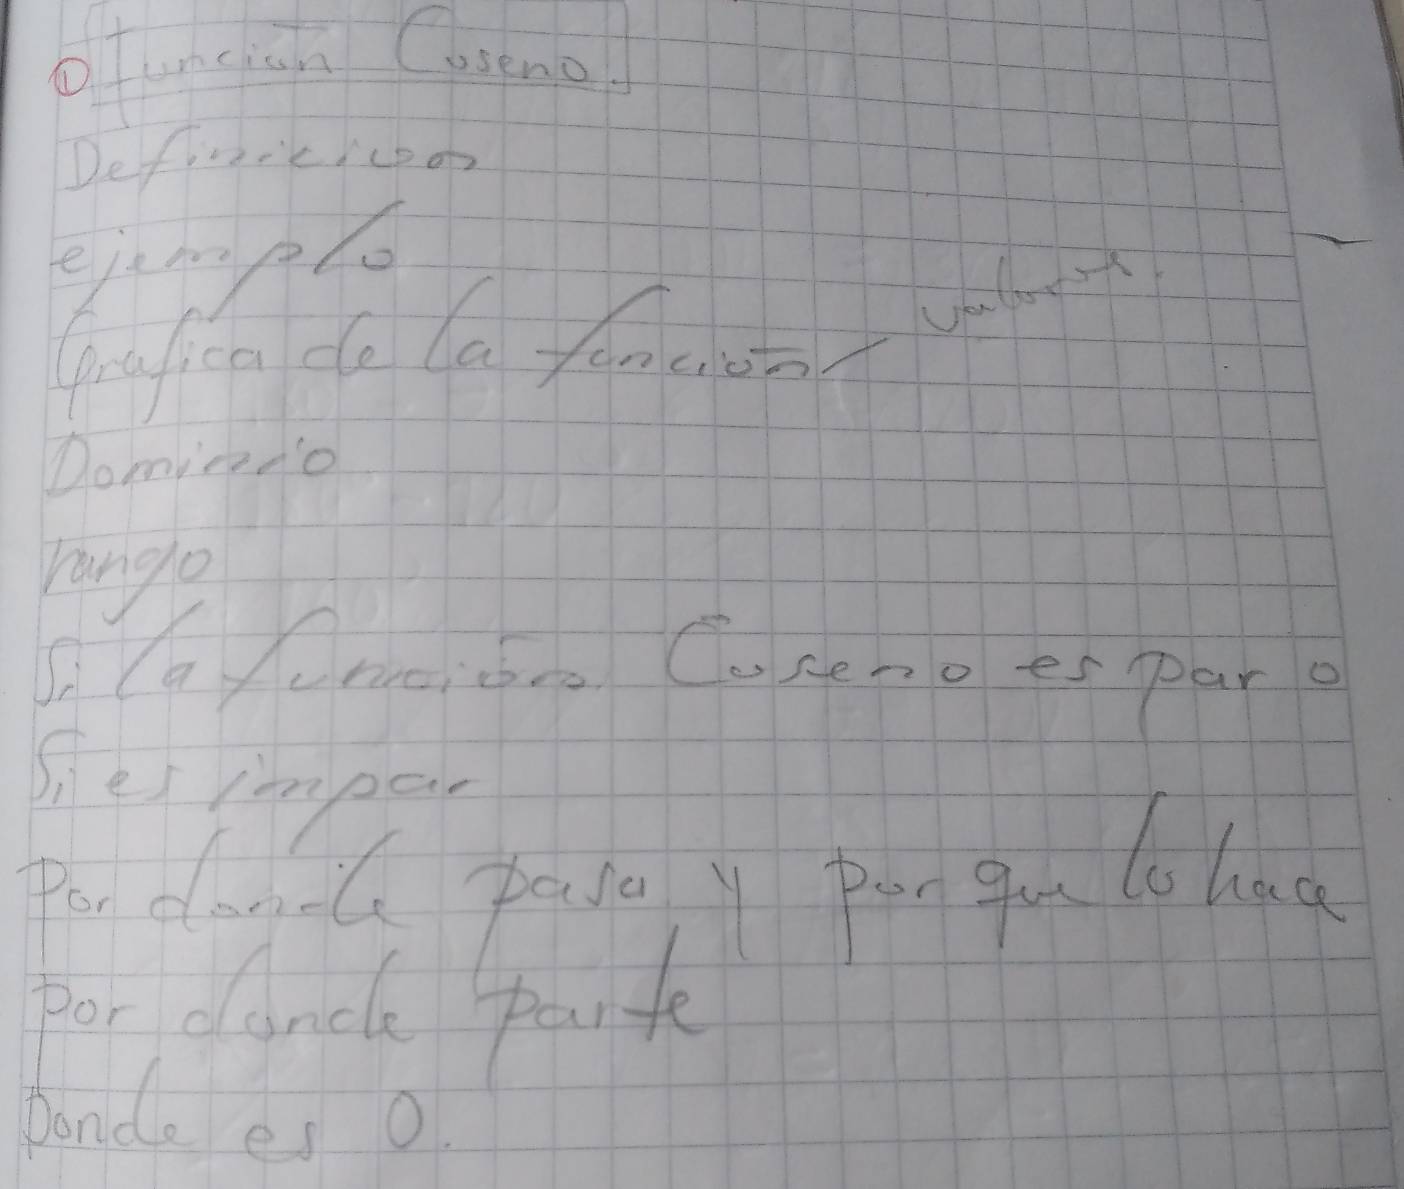 ① Función Coseno.
Definicion
ejemplo
Grafica de la función / valores.
Dominio
rango
Si la función Coseno es par o
Si es impar
Por donde pasa y por que lo hace
Por donde parte
Donde es 0.